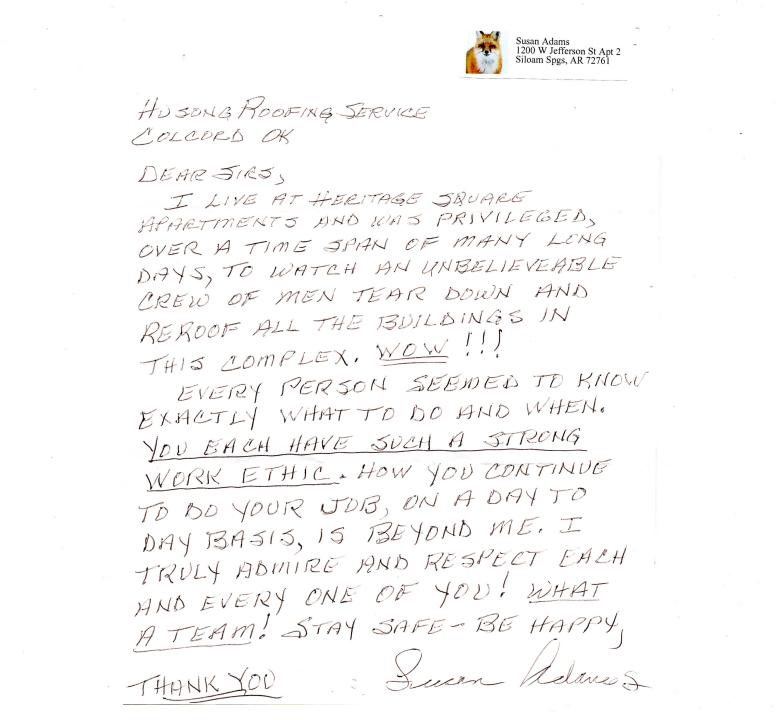 Susan Adams
1200 W Jefferson St Apt 2
Siloam Spgs, AR 72761
HUSONG ROOFING SERVICE
COLCORD OK
DEAR SIRS,
I LIVE AT HERITAGE SQUARE
APARTMENTS AND WAS PRIVILEGED,
OVER A TIME SPAN OF MANY LONG
DAYS, TO WATCH AN UNBELIEVEABLE
CREW OF MEN TEAR DOWN AND
REROOF ALL THE BUILDINGS IN
THIS COMPLEX. WOW !!!
EVERY PERSON SEEMED TO KNOW
EXACTLY WHAT TO DO AND WHEN.
YOU EACH HAVE SUCH A STRONG
WORK ETHIC. HOW YOU CONTINUE
TO DO YOUR JOB, ON A DAY TO
DAY BASIS, IS BEYOND ME. I
TRULY ADMIRE AND RESPECT EACH
AND EVERY ONE OF YOU! WHAT
A TEAM! STAY SAFE - BE HAPPY,
THANK YOU Susan Adams